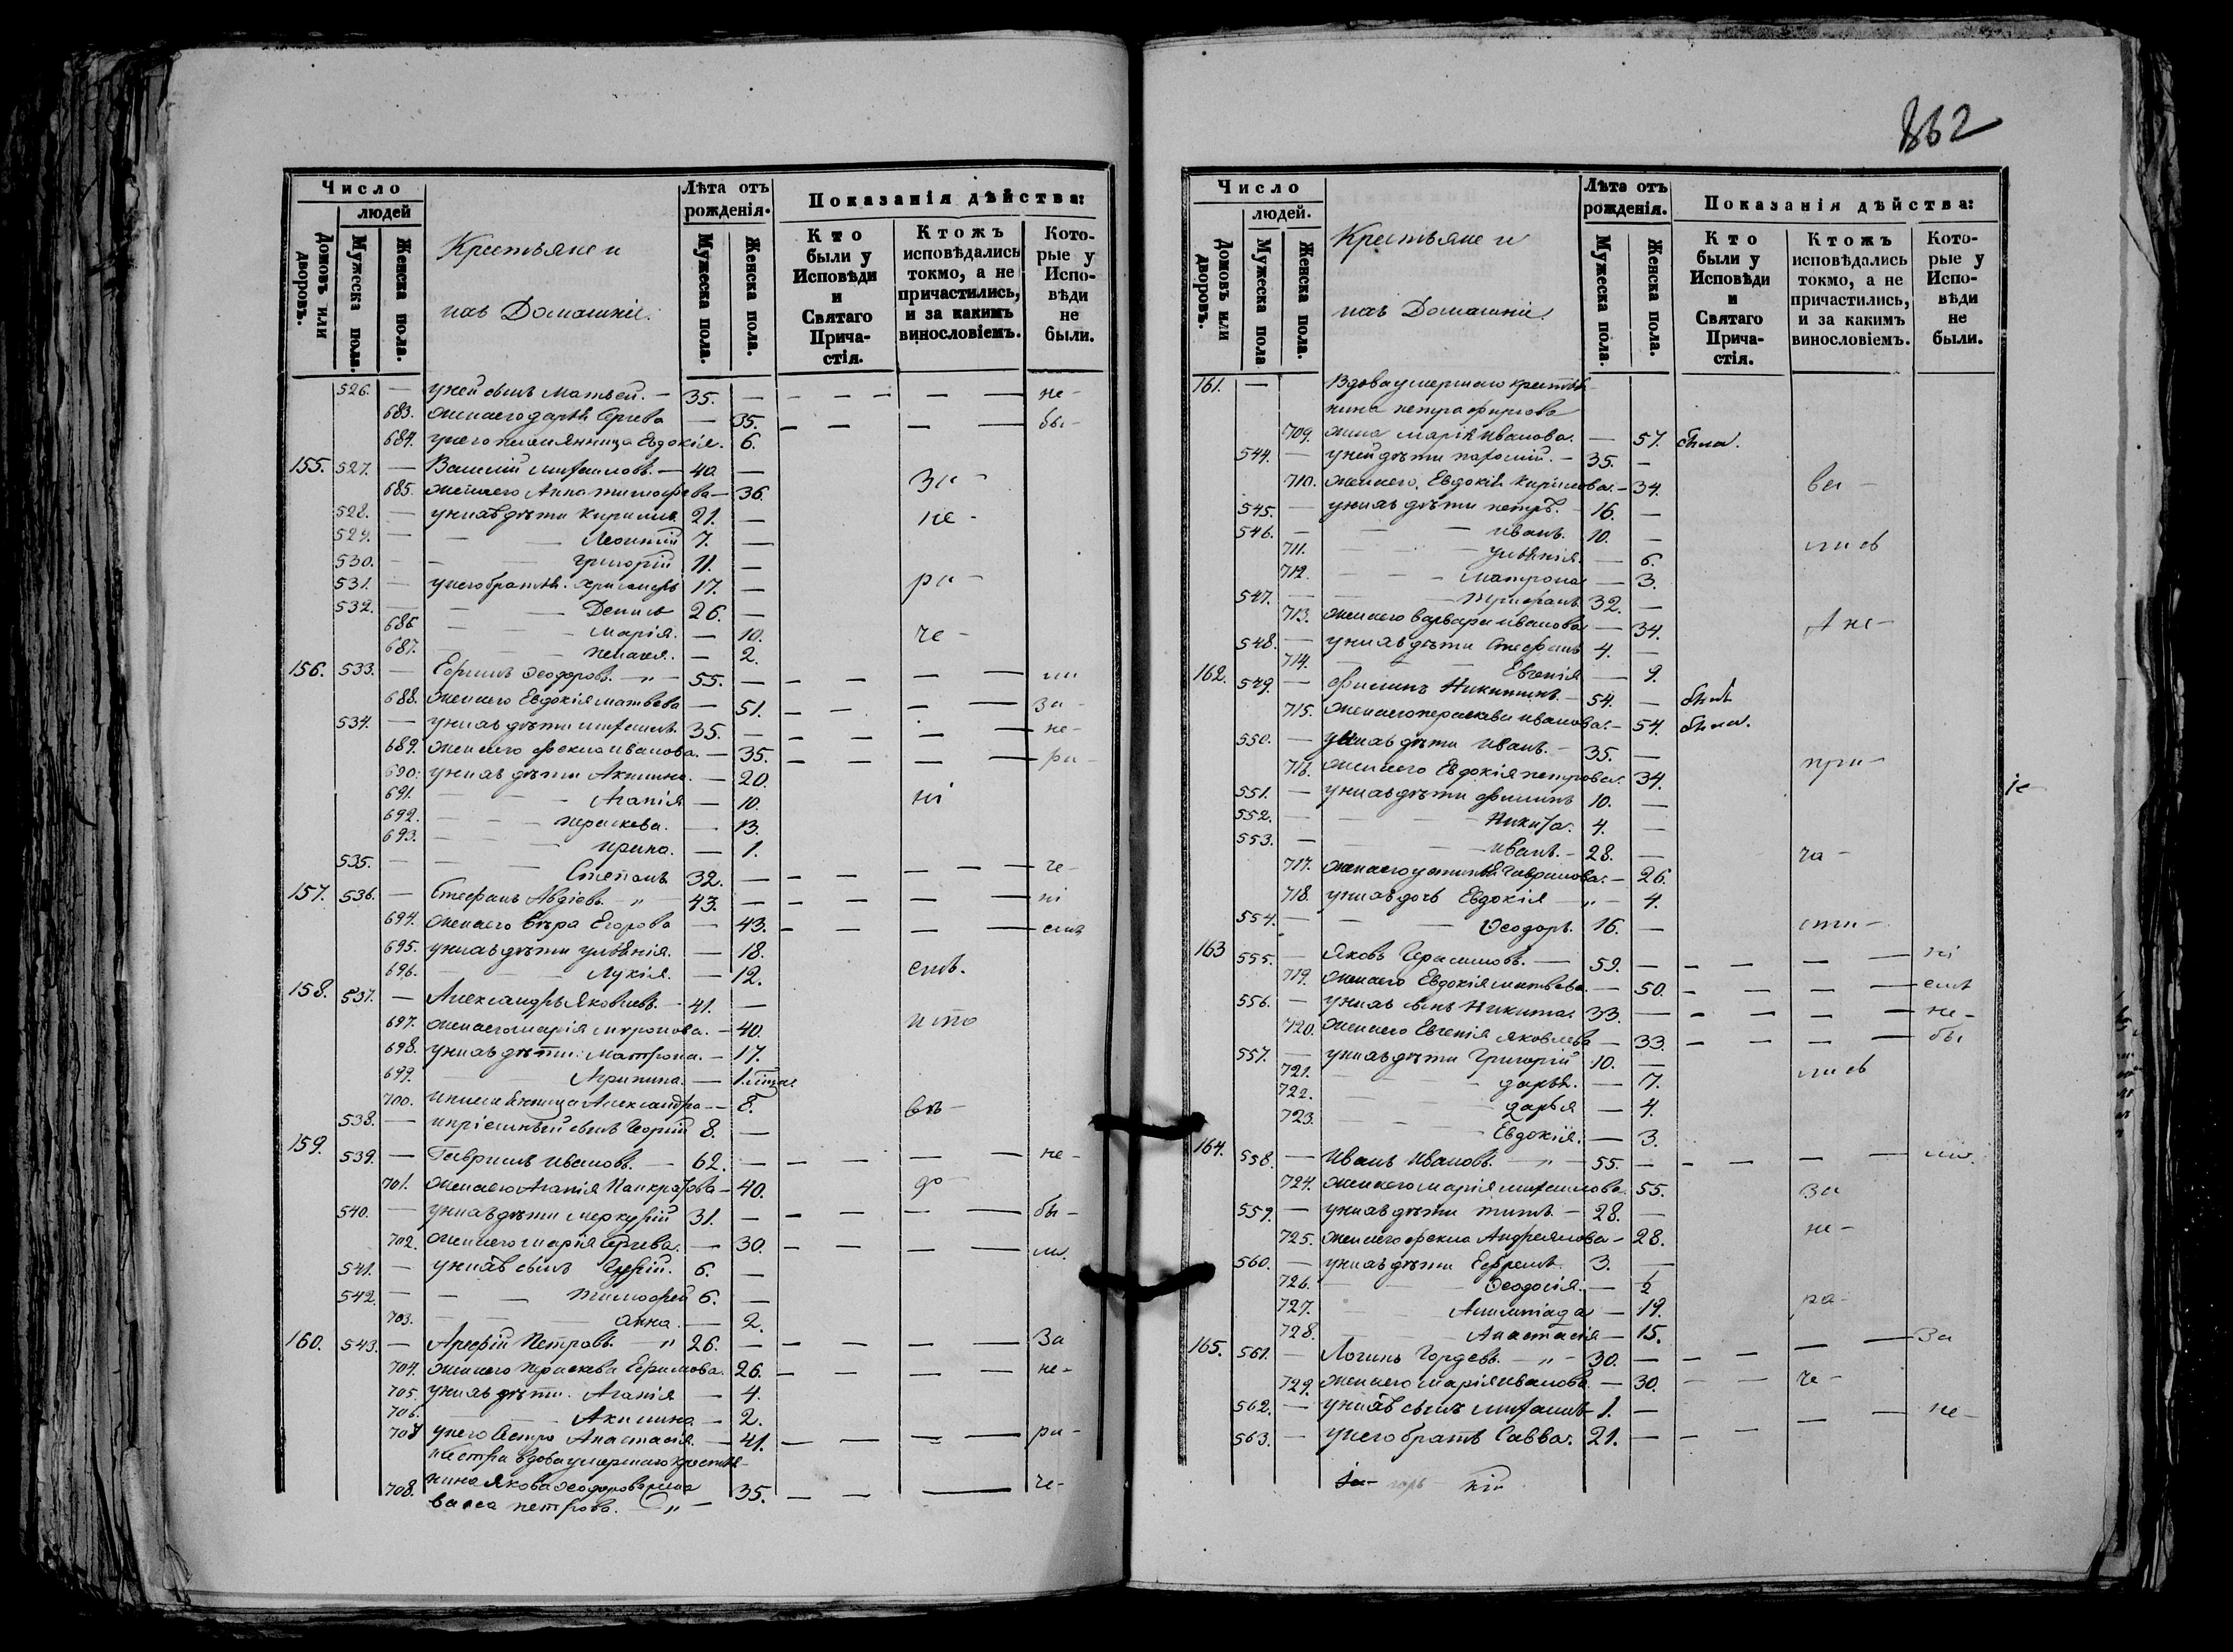 Число
людей
Домовъ или дворовъ.
Мужеска пола.
Женска пола.
Крестьяне и
ихъ Домашніе.
Лѣта отъ рожденія.
Мужеска пола.
Женска пола.
Показанія дѣйства:
Кто были у Исповѣди и Святаго Причастія.
Ктожъ исповѣдались токмо, а не причастились, и за какимъ винословіемъ.
Которые у Исповѣди не были.
526. — у ней сынъ Матвей. — 35. — не-
683. жена его Сергева — 35. бы-
684. у него племянница Евдокія. 6.
155. 527. — Василій Михаиловъ. — 40. —
685. жена его Анна Тимофева — 36. За-
528. — у нихъ дѣти Кирилъ 21. — не-
529. — Леонтій 7. —
530. — Григорій 11. —
531. — у него братья 17. — ра-
532. — Денисъ 26. —
686. Марія. — 10. че-
687. Пелагея. — 2.
156. 533. — Ефимъ Ѳеодоровъ. 55. — ли
688. жена его Евдокія Матвева — 51. за-
534. — у нихъ дѣти Михаилъ 35. — не-
689. жена его Фекла Иванова. — 35. ра-
690. у нихъ дѣти Акилина. — 20.
691. Агапія — 10. ні
692. Параскева. — 13.
693. Ирина. — 1.
535. — Степанъ 32. — че-
157. 536. — Стефанъ Авдіевъ. 43. — ні
694. жена его Вѣра Егорова — 43. емъ
695. у нихъ дѣти Улянія. — 18.
696. Лукія. — 12. емъ.
158. 537. — Александръ Яковлевъ. — 41. —
697. жена его Марія Миронова. — 40.
698. у нихъ дѣти: Матрона. — 17.
699. Агрипина. — 1.
700. Александра — 8.
538. — сынъ Георгій 8. —
159. 539. — Гавріилъ Ивановъ. — 62. — не-
701. жена его Агапія Панкратова — 40. до-
540. — у нихъ дѣти Меркурій 31. — бы-
702. жена его Марія Сергева. — 30. ли.
541. — у нихъ сынъ 6. —
542. — Тимофей 6. —
703. Анна. — 2.
160. 543. — Арефій Петровъ. 26. — За
704. жена его Параскева Ефимова. 26. не-
705. у нихъ дѣти. Агапія — 4.
706. Акилина — 2.
707 у него сестра Анастасія. — 41. ра-
сестра вдова умершаго крестья-
нина Якова Ѳеодорова жена
708. Васса Петрова. 35. че-
862
Число
людей.
Домовъ или дворовъ.
Мужеска пола
Женска пола.
Крестьяне и
ихъ Домашніе.
Лѣта отъ рожденія.
Мужеска пола.
Женска пола.
Показанія дѣйства:
Кто были у Исповѣди и Святаго Причастія.
Ктожъ исповѣдались токмо, а не причастились, и за какимъ винословіемъ.
Которые у Исповѣди не были.
161. — Вдова умершаго крестья-
нина Петра Фирсова
709. жена Марія Иванова. — 57. была.
544. — у ней дѣти 35. —
710. жена его. Евдокія Кирилова. — 34.
545. — у нихъ дѣти Петръ. — 16. —
546. — Иванъ. 10. —
711. Улянія. — 6. лись
712. Матрона — 3.
547. — 32. —
713. жена его Варвара Иванова — 34. А не-
548. — у нихъ дѣти Стефанъ 4. —
714. Евгенія — 9.
162. 549. — Филипъ Никитинъ. — 54. — былъ
715. жена его Параскева Иванова. — 54. была.
550. — у нихъ дѣти Иванъ. — 35. —
716. жена его Евдокія Петрова. 34. при-
551. — у нихъ дѣти Филипъ 10. —
552. — Никита. 4. —
553. — Иванъ. — 28. — ча-
717. жена его Гаврилова. — 26.
718. у нихъ дочь Евдокія — 4.
554. — Ѳеодоръ. 16. — сти-
163 555. — Яковъ Герасимовъ. — 59. — ні
719. жена его Евдокія Матвева. — 50. емъ
556. — у нихъ сынъ Никита. 33. — не-
720. жена его Евгенія Яковлева — 33. бы
557. — у нихъ дѣти Григорій 10. —
721. Дарья. — 7. лись
722. Дарья — 4.
723. Евдокія. — 3.
164. 558. — Иванъ Ивановъ. 55. — ли.
724. жена его Марія Михаилова. 55. за
559. — у нихъ дѣти Титъ. — 28. —
725. жена его Фекла Андреянова — 28. не-
560. — у нихъ дѣти Ефремъ. 3. —
726. Ѳеодосія. —
727. — 19. ра-
728. Анастасія — 15.
165. 561. — Логинъ Гордевъ. 30. — За
729. жена его Марія Иванова. — 30. че-
562. — у нихъ сынъ Михаилъ 1. — не-
563. — у него братъ Савва. 21. —
кій